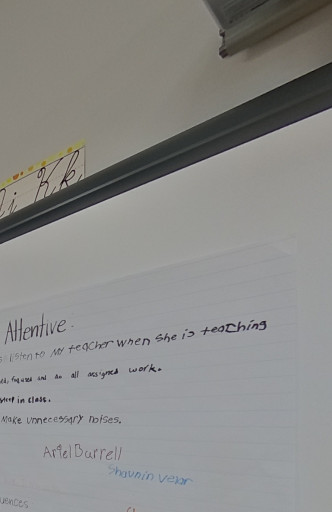 i Kk
Attentive.
listen to my teacher when she is teaching
focused and do all assigned work.
sleep in class.
Make unnecessary noises.
Ariel Burrell
Shaunin
uences